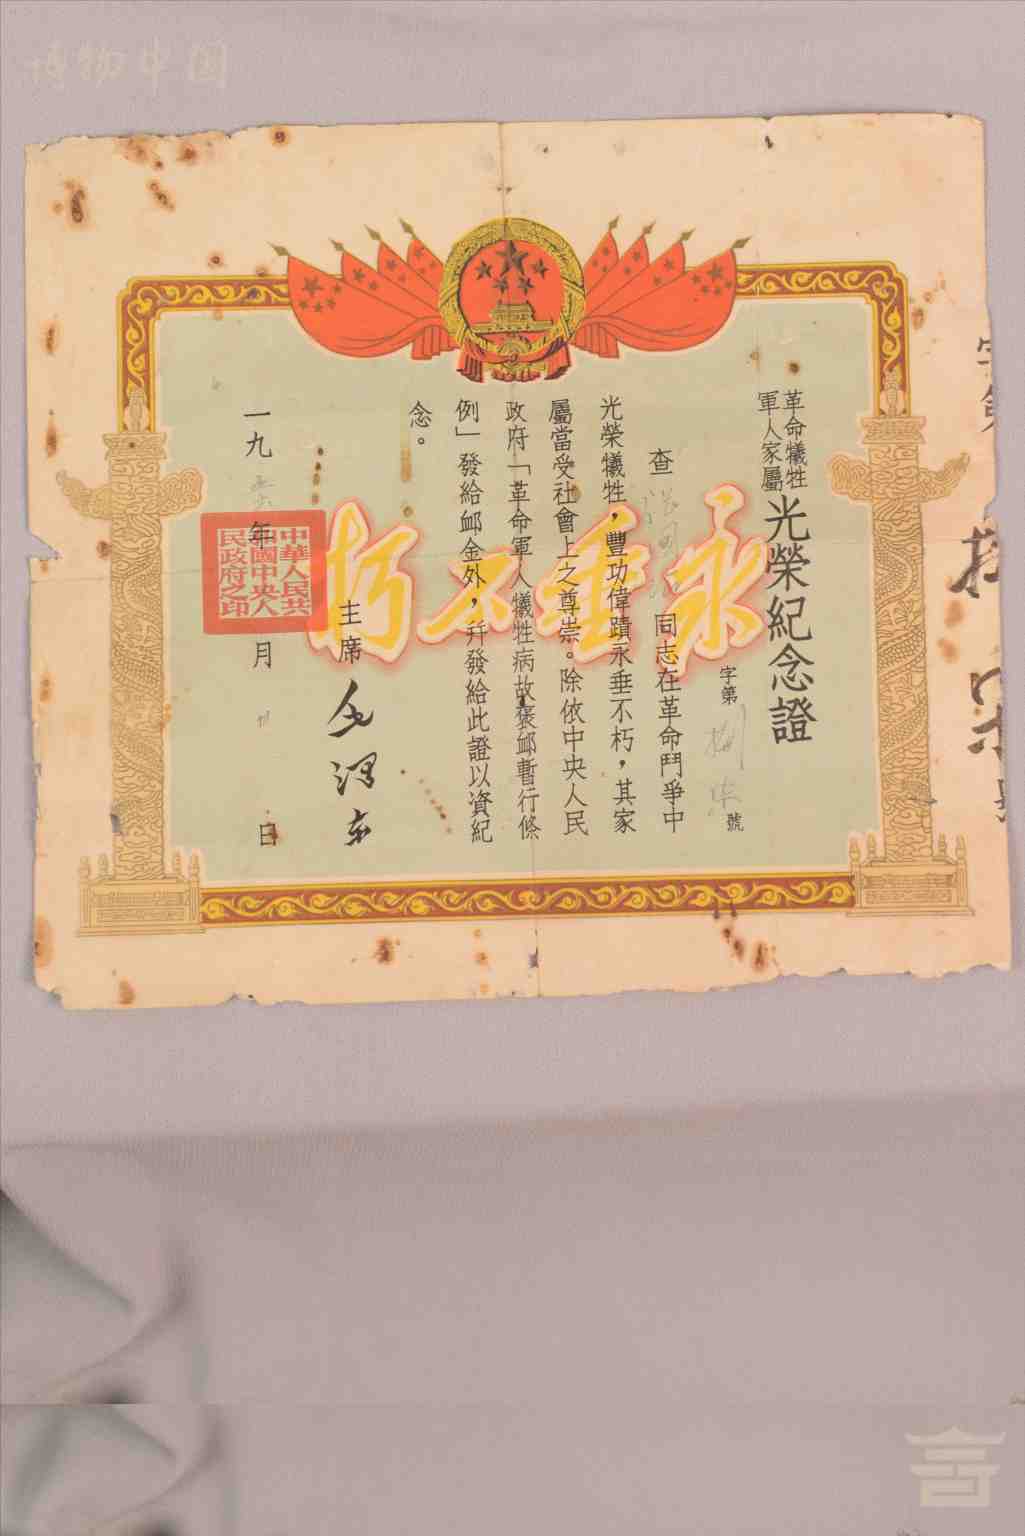 博物中国
革命犧牲
軍人家屬
光榮紀念證
字第
號
查
同志在革命鬥爭中
光榮犧牲，豐功偉蹟永垂不朽，其家
屬當受社會上之尊崇。除依中央人民
政府「革命軍人犧牲病故褒卹暫行條
例」發給卹金外，幷發給此證以資紀
念。
主席 毛澤東
一九 年
月
日
永垂不朽
中華人民共
和國中央人
民政府之印